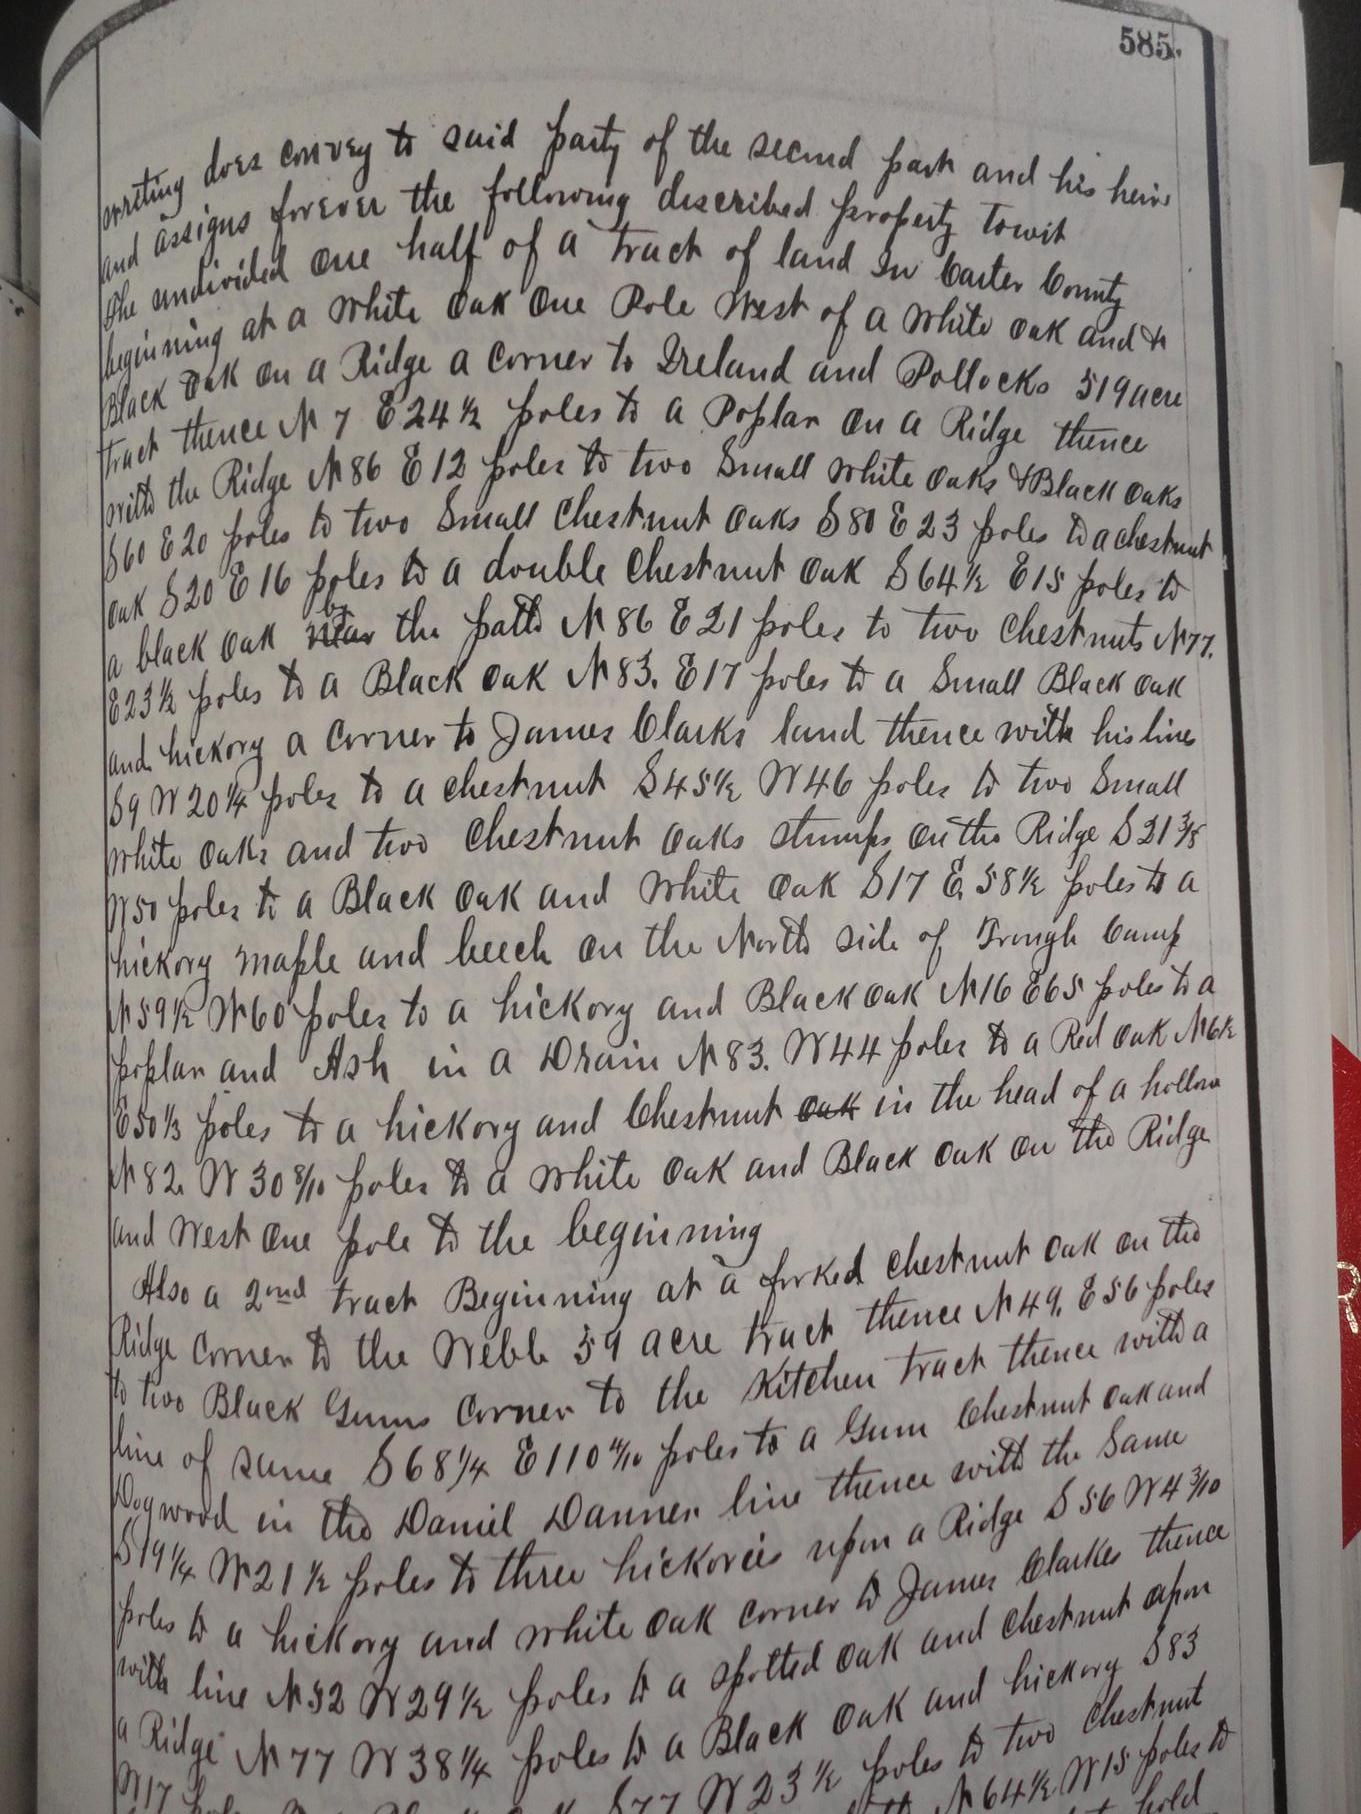 585.
writing does convey to said party of the second part and his heirs
and assigns forever the following described property towit
The undivided one half of a tract of land in Carter County
beginning at a white oak One Pole West of a white oak and &
Black Oak on a Ridge a corner to Ireland and Pollocks 519 acre
tract thence N 7 E 24 1/2 poles to a Poplar on a Ridge thence
with the Ridge N 86 E 12 poles to two Small white oaks & Black oaks
S 60 E 20 poles to two Small Chestnut oaks S 80 E 23 poles to a chestnut
oak S 20 E 16 poles to a double Chestnut oak S 64 1/2 E 15 poles to
a black oak by the path N 86 E 21 poles to two Chestnuts N 77.
E 23 1/2 poles to a Black oak N 83. E 17 poles to a Small Black oak
and hickory a corner to James Clarks land thence with his lines
S 9 W 20 1/4 poles to a chestnut S 45 1/2 W 46 poles to two Small
white oaks and two chestnut oaks stumps on the Ridge S 21 3/5
W 50 poles to a Black oak and white oak S 17 E 58 1/2 poles to a
hickory maple and beech on the North side of Trough Camp
N 59 1/2 W 60 poles to a hickory and Black oak N 16 E 65 poles to a
poplar and Ash in a Drain N 83. W 44 poles to a Red oak N 6 1/2
E 50 1/3 poles to a hickory and Chestnut oak in the head of a hollow
N 82. W 30 8/10 poles to a white oak and Black oak on the Ridge
and West One pole to the beginning
Also a 2nd tract Beginning at a forked chestnut oak on the
Ridge corner to the Webb 59 acre tract thence N 49. E 56 poles
to two Black Gums corner to the Kitchen tract thence with a
line of same S 68 1/4 E 110 poles to a Gum Chestnut oak and
Dogwood in the Daniel Danner line thence with the Same
S 19 1/4 W 21 1/2 poles to three hickories upon a Ridge S 56 W 4 3/10
poles to a hickory and white oak corner to James Clarkes thence
with line N 52 W 29 1/2 poles to a spotted oak and chestnut upon
a Ridge N 77 W 38 1/4 poles to a Black oak and hickory S 83
W 17 S 77 W 23 1/2 poles to two chestnut
N 64 1/2 W 15 poles to